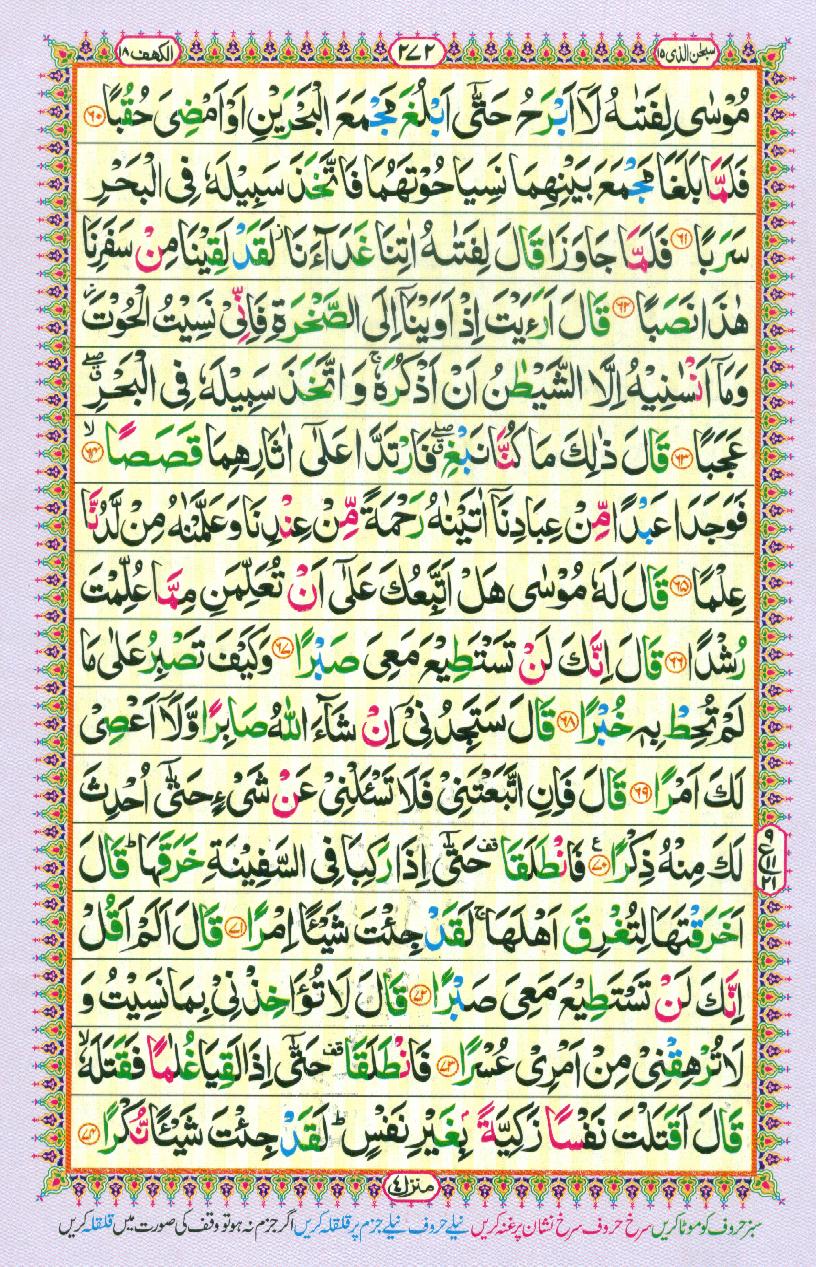 سبحٰن الذی ۱۵
۲۷۲
الکھف ۱۸
مُوْسٰى لِفَتٰىهُ لَاۤ اَبْرَحُ حَتّٰۤى اَبْلُغَ مَجْمَعَ الْبَحْرَيْنِ اَوْ اَمْضِىَ حُقُبًا ۶۰
فَلَمَّا بَلَغَا مَجْمَعَ بَيْنِهِمَا نَسِيَا حُوْتَهُمَا فَاتَّخَذَ سَبِيْلَهٗ فِى الْبَحْرِ
سَرَبًا ۶۱ فَلَمَّا جَاوَزَا قَالَ لِفَتٰىهُ اٰتِنَا غَدَآءَنَا ز لَقَدْ لَقِيْنَا مِنْ سَفَرِنَا
هٰذَا نَصَبًا ۶۲ قَالَ اَرَءَيْتَ اِذْ اَوَيْنَاۤ اِلَى الصَّخْرَةِ فَاِنِّىْ نَسِيْتُ الْحُوْتَ ز
وَمَاۤ اَنْسٰنِيْهُ اِلَّا الشَّيْطٰنُ اَنْ اَذْكُرَهٗ ج وَاتَّخَذَ سَبِيْلَهٗ فِى الْبَحْرِ ق صلے
عَجَبًا ۶۳ قَالَ ذٰلِكَ مَا كُنَّا نَبْغِ ق صلے فَارْتَدَّا عَلٰۤى اٰثَارِهِمَا قَصَصًا لا ۶۴
فَوَجَدَا عَبْدًا مِّنْ عِبَادِنَاۤ اٰتَيْنٰهُ رَحْمَةً مِّنْ عِنْدِنَا وَعَلَّمْنٰهُ مِنْ لَّدُنَّا
عِلْمًا ۶۵ قَالَ لَهٗ مُوْسٰى هَلْ اَتَّبِعُكَ عَلٰۤى اَنْ تُعَلِّمَنِ مِمَّا عُلِّمْتَ
رُشْدًا ۶۶ قَالَ اِنَّكَ لَنْ تَسْتَطِيْعَ مَعِىَ صَبْرًا ۶۷ وَكَيْفَ تَصْبِرُ عَلٰى مَا
لَمْ تُحِطْ بِهٖ خُبْرًا ۶۸ قَالَ سَتَجِدُنِىْۤ اِنْ شَآءَ اللّٰهُ صَابِرًا وَّلَاۤ اَعْصِىْ
لَكَ اَمْرًا ۶۹ قَالَ فَاِنِ اتَّبَعْتَنِىْ فَلَا تَسْـَٔلْنِىْ عَنْ شَىْءٍ حَتّٰۤى اُحْدِثَ
لَكَ مِنْهُ ذِكْرًا ۷۰ ع فَانْطَلَقَا قف حَتّٰۤى اِذَا رَكِبَا فِى السَّفِيْنَةِ خَرَقَهَا ط قَالَ
ع ۹ ۱۱ ۲۱
اَخَرَقْتَهَا لِتُغْرِقَ اَهْلَهَا ج لَقَدْ جِئْتَ شَيْـًٔا اِمْرًا ۷۱ قَالَ اَلَمْ اَقُلْ
اِنَّكَ لَنْ تَسْتَطِيْعَ مَعِىَ صَبْرًا ۷۲ قَالَ لَا تُؤَاخِذْنِىْ بِمَا نَسِيْتُ وَ
لَا تُرْهِقْنِىْ مِنْ اَمْرِىْ عُسْرًا ۷۳ فَانْطَلَقَا قف حَتّٰۤى اِذَا لَقِيَا غُلٰمًا فَقَتَلَهٗ لا
قَالَ اَقَتَلْتَ نَفْسًا زَكِيَّةً ۢ بِغَيْرِ نَفْسٍ ط لَقَدْ جِئْتَ شَيْـًٔا نُّكْرًا ۷۴
منزل ۴
سبز حروف کو موٹا کریں سرخ حروف سرخ نشان پر غنہ کریں نیلے حروف نیلے جزم پر قلقلہ کریں اگر جزم نہ ہو تو وقف کی صورت میں قلقلہ کریں